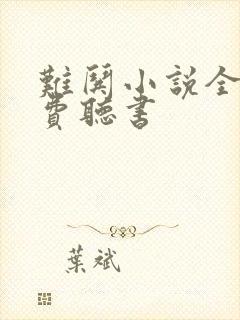 難鬪小説全
費聽書
葉斌